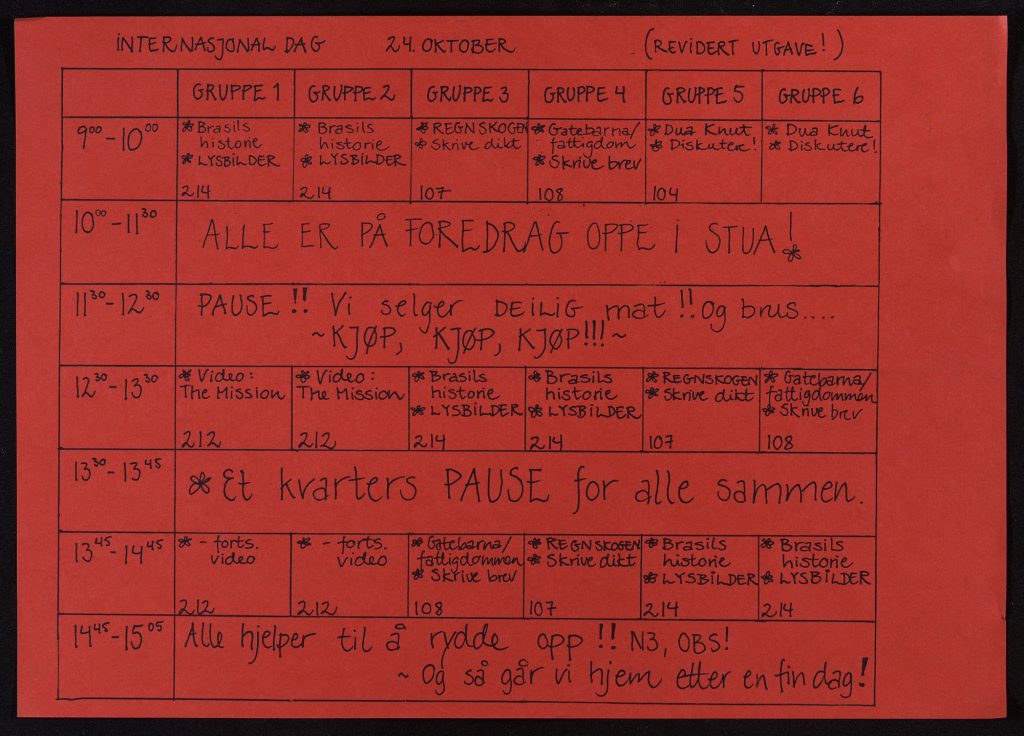 INTERNASJONAL DAG 24. OKTOBER (REVIDERT UTGAVE!)
GRUPPE 1 GRUPPE 2 GRUPPE 3 GRUPPE 4 GRUPPE 5 GRUPPE 6
9⁰⁰-10⁰⁰
* Brasils
historie
* LYSBILDER
214
* Brasils
historie
* LYSBILDER
214
* REGNSKOGEN
* Skrive dikt
107
* Gatebarna/
fattigdom
* Skrive brev
108
* Dua Knut
* Diskutere!
104
* Dua Knut
* Diskutere!
10⁰⁰-11³⁰
ALLE ER PÅ FOREDRAG OPPE I STUA!
11³⁰-12³⁰
PAUSE!! Vi selger DEILIG mat!! Og brus....
~KJØP, KJØP, KJØP!!!~
12³⁰-13³⁰
* Video:
The Mission
212
* Video:
The Mission
212
* Brasils
historie
* LYSBILDER
214
* Brasils
historie
* LYSBILDER
214
* REGNSKOGEN
* Skrive dikt
107
* Gatebarna/
fattigdommen
* Skrive brev
108
13³⁰-13⁴⁵
* Et kvarters PAUSE for alle sammen.
13⁴⁵-14⁴⁵
* - forts.
video
212
* - forts.
video
212
* Gatebarna/
fattigdommen
* Skrive brev
108
* REGNSKOGEN
* Skrive dikt
107
* Brasils
historie
* LYSBILDER
214
* Brasils
historie
* LYSBILDER
214
14⁴⁵-15⁰⁵
Alle hjelper til å rydde opp!! N3, OBS!
~ Og så går vi hjem etter en fin dag!